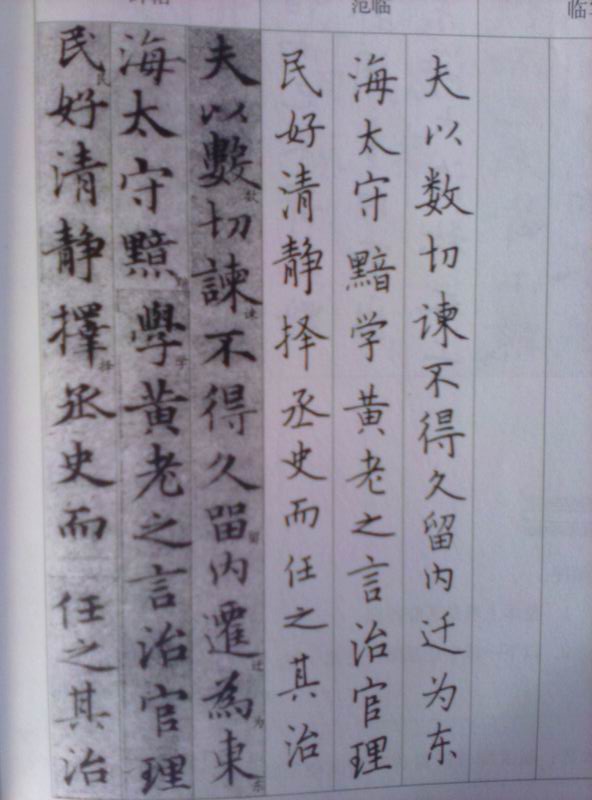 范临
夫以数切谏不得久留内迁为东
海太守黯学黄老之言治官理
民好清静择丞史而任之其治
夫以數切諫不得久留内遷為東
海太守黯學黄老之言治官理
民好清静擇丞史而任之其治